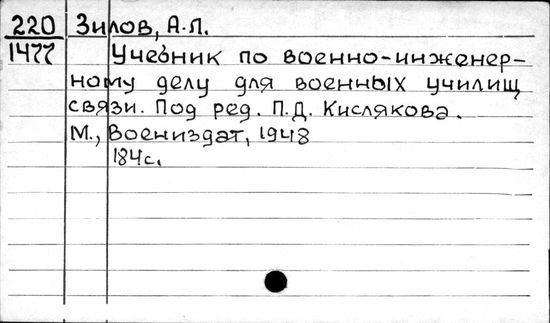 220 Зилов, А.Л.
1477 Учебник по военно-инженер-
ному делу для военных училищ
связи. Под ред. П.Д. Кислякова.
М., Воениздат, 1948
184с.